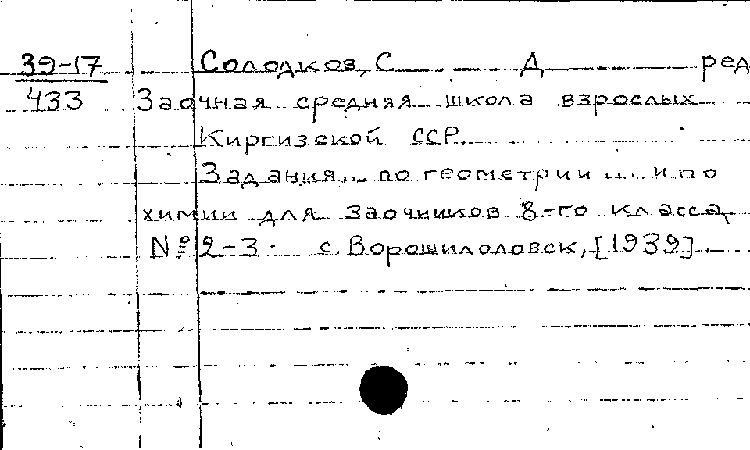 39-17 Солодков, С Д ред
433 Заочная средняя школа взрослых
Киргизской ССР.
Задания по геометрии и по
химии для заочников 8-го класса,
№ 2-3. с. Ворошилоловск, [1939].